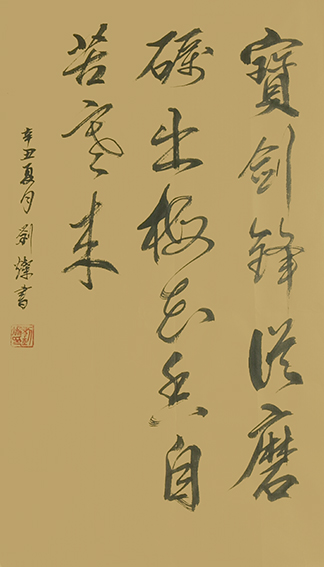 寶剑鋒從磨
砺出梅花香自
苦寒来
辛丑夏月劉燦書